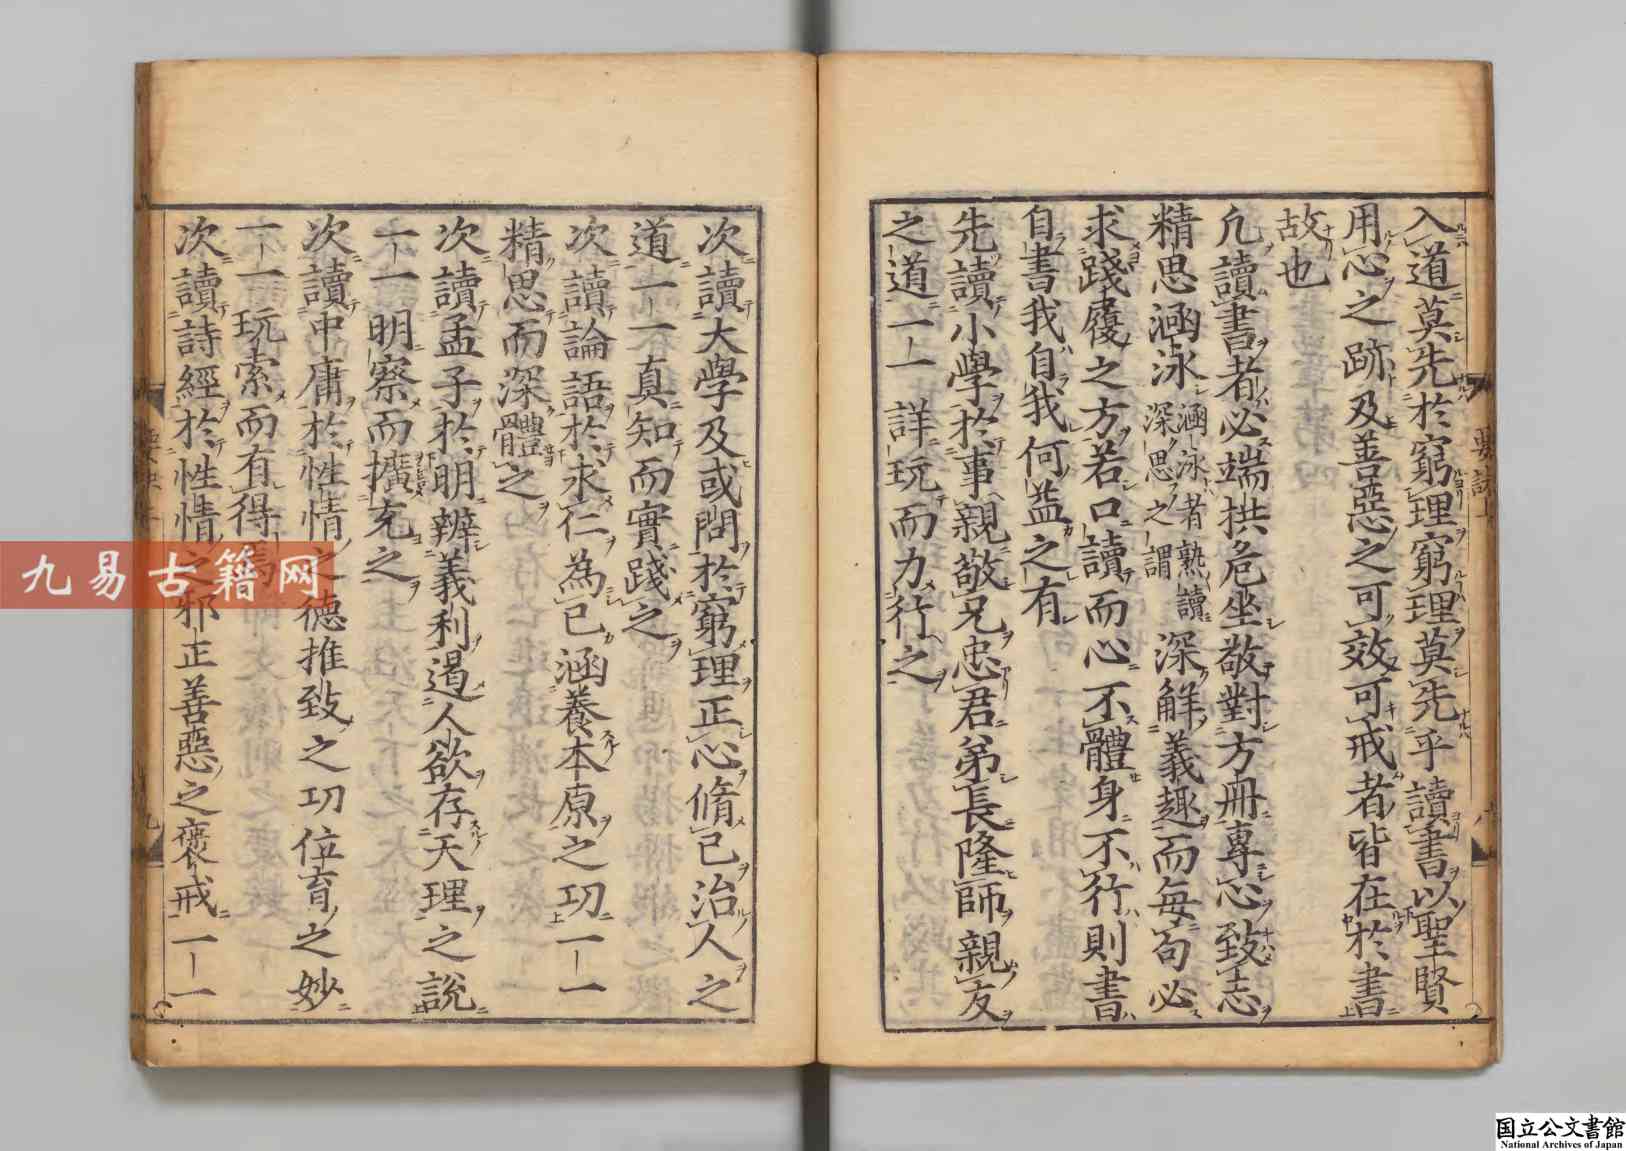 入道莫先於窮理窮理莫先乎讀書以聖賢
用心之跡及善惡之可效可戒者皆在於書
故也
凢讀書者必端拱危坐敬對方冊專心致志
精思涵泳涵泳者熟讀深思之謂深解義趣而每句必
求踐履之方若口讀而心不體身不行則書
自書我自我何益之有
先讀小學於事親敬兄忠君弟長隆師親友
之道一一詳玩而力行之
次讀大學及或問於窮理正心脩己治人之
道一一真知而實踐之
次讀論語於求仁為己涵養本原之功一一
精思而深體之
次讀孟子於明辨義利遏人欲存天理之説
一一明察而擴充之
次讀中庸於性情之德推致之功位育之妙
一一玩索而有得焉
次讀詩經於性情之邪正善惡之褒戒一一
九易古籍网
国立公文書館
National Archives of Japan